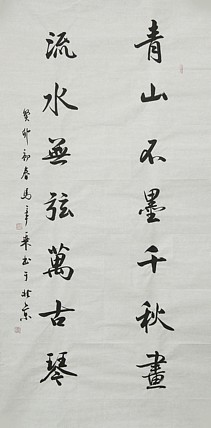 青山不墨千秋畫
流水無弦萬古琴
癸卯初春馬
書于北京